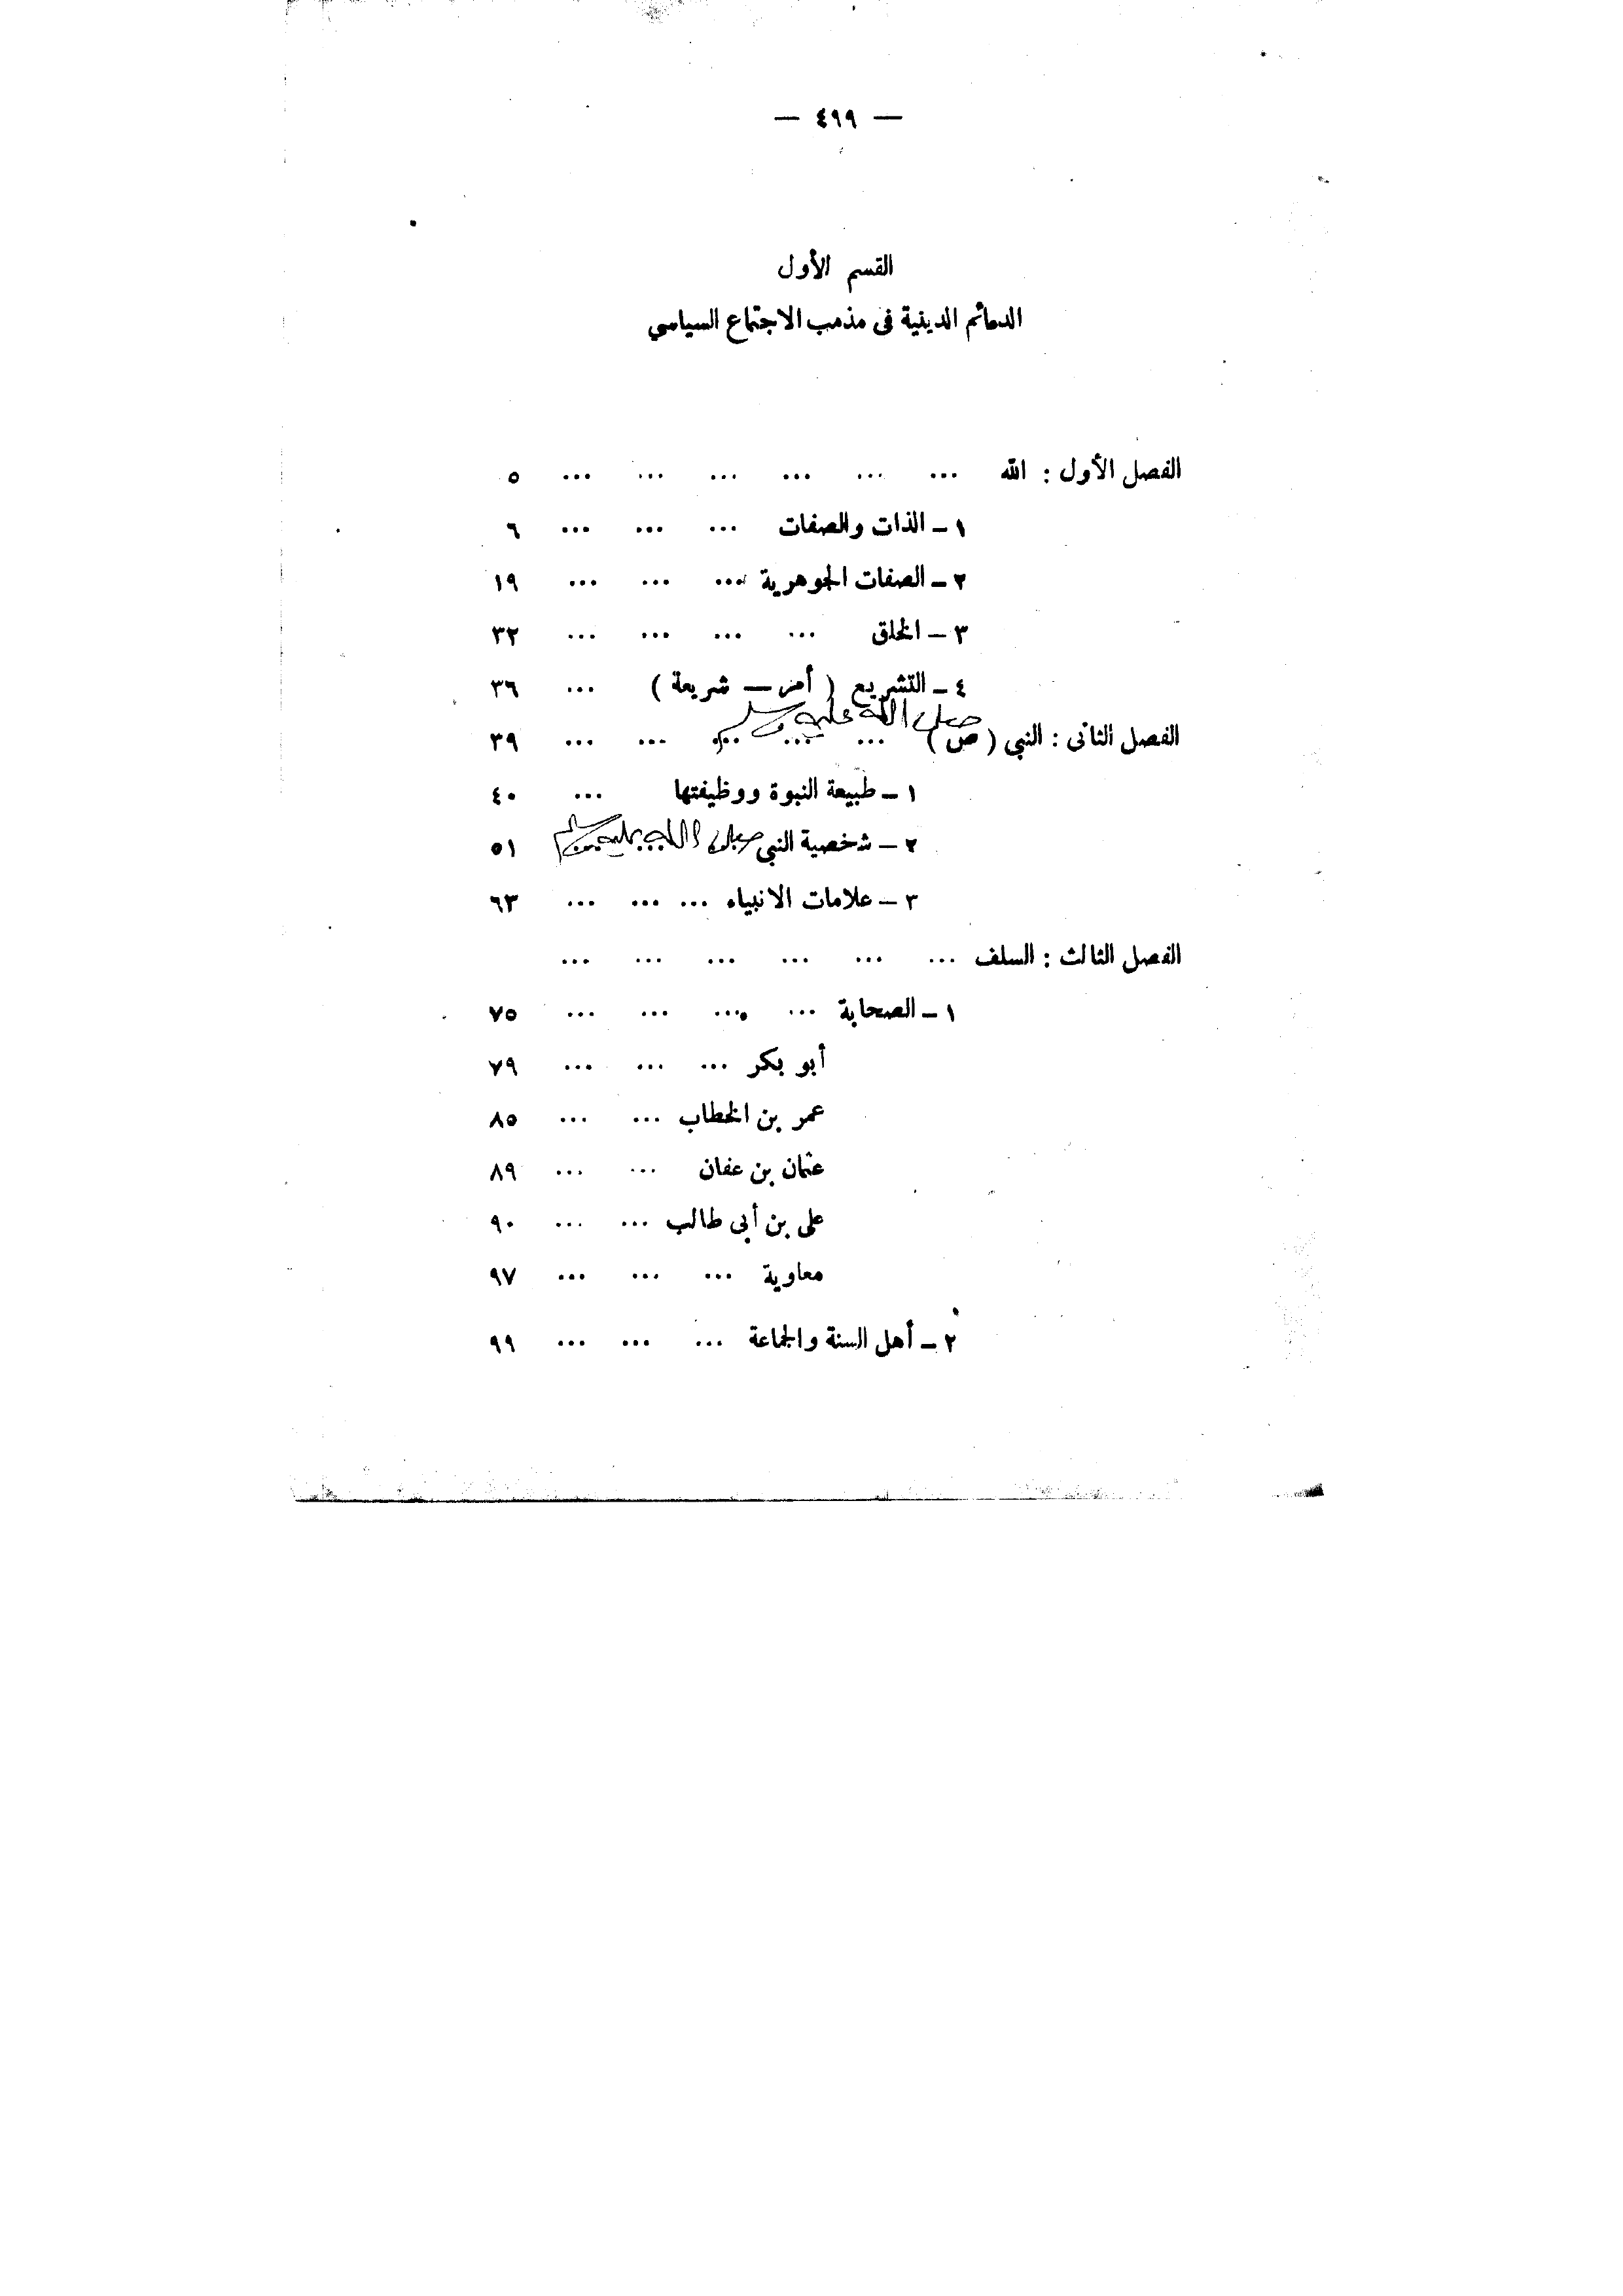 — ٤٩٩ —
القسم الأول
الدعائم الدينية فى مذهب الاجتماع السياسي
الفصل الأول : الله ... ... ... ... ... ... ٥
١ – الذات والصفات ... ... ... ٦
٢ – الصفات الجوهرية ... ... ... ١٩
٣ – الخلق ... ... ... ... ٣٢
٤ – التشريع ( أمر — شريعة ) ... ٣٦
صلى الله عليه وسلم
الفصل الثانى : النبي ( ص ) ... ... ... ... ... ٣٩
١ – طبيعة النبوة ووظيفتها ... ٤٠
٢ – شخصية النبى صلى الله عليه وسلم ٥١
٣ – علامات الانبياء ... ... ... ٦٣
الفصل الثالث : السلف ... ... ... ... ... ...
١ – الصحابة ... ... ... ... ٧٥
أبو بكر ... ... ... ٧٩
عمر بن الخطاب ... ... ٨٥
عثمان بن عفان ... ... ٨٩
على بن أبى طالب ... ... ٩٠
معاوية ... ... ... ٩٧
٢ – أهل السنة والجماعة ... ... ... ٩٩